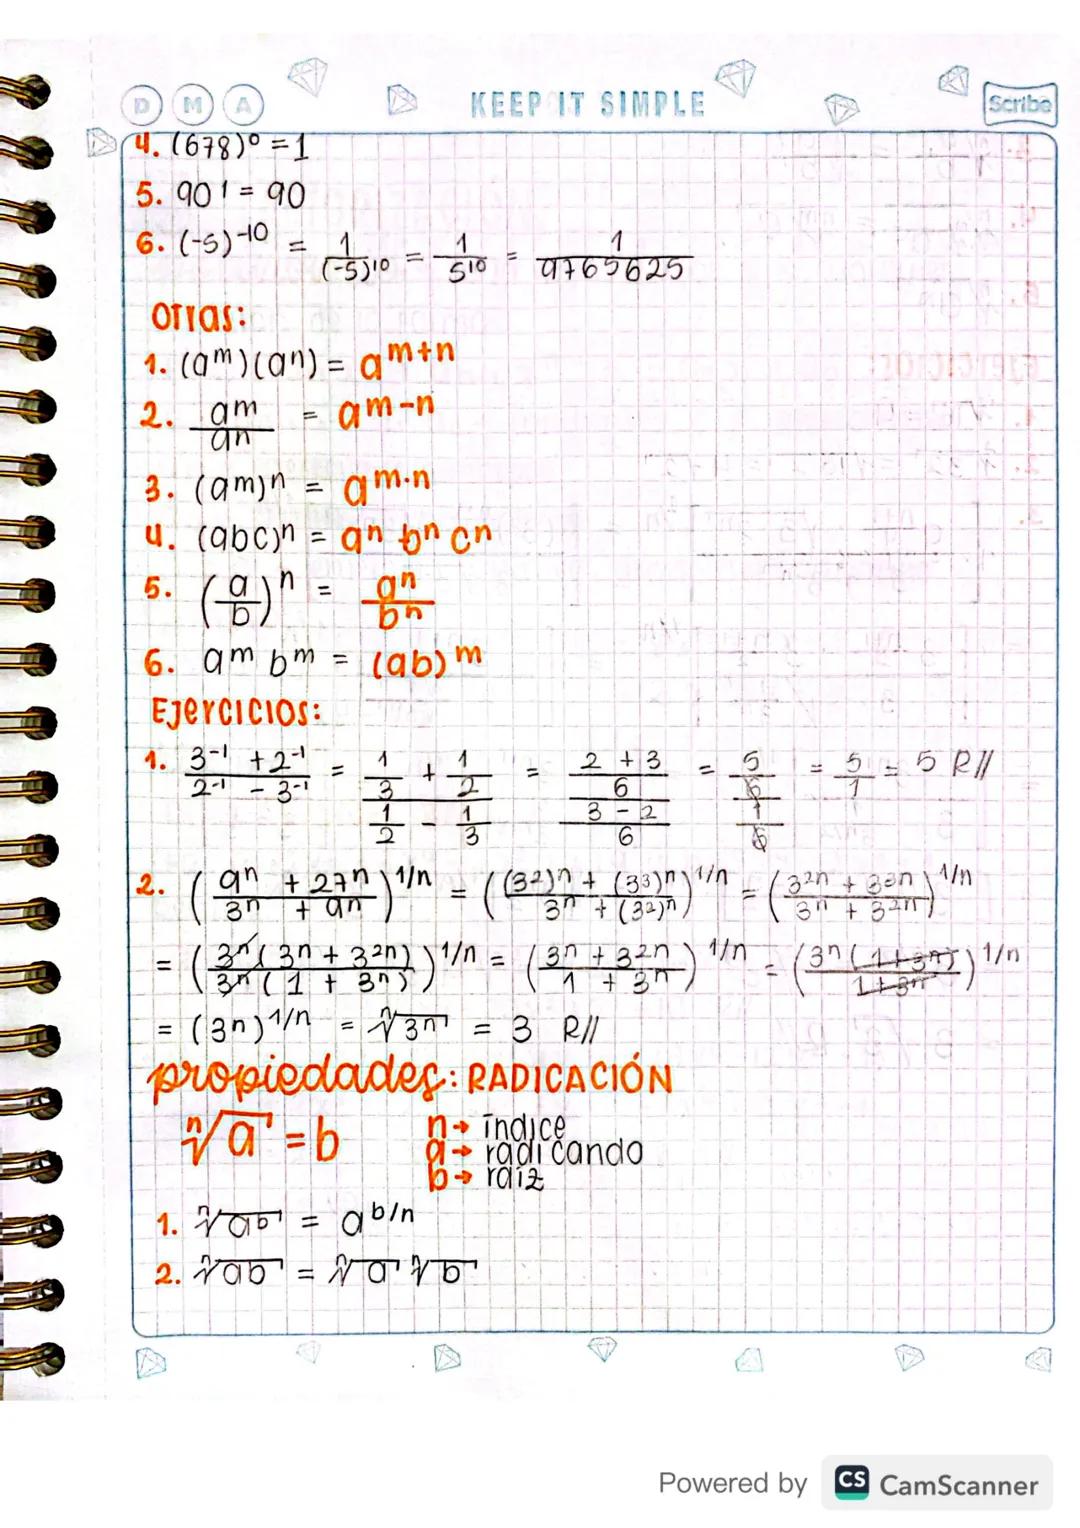 D M A KEEP IT SIMPLE Scribe
4. (678)⁰ = 1
5. 90¹ = 90
6. (-5)⁻¹⁰ = 1/(-5)¹⁰ = 1/5¹⁰ = 1/9765625
Otras:
1. (aᵐ)(aⁿ) = aᵐ⁺ⁿ
2. aᵐ/aⁿ = aᵐ⁻ⁿ
3. (aᵐ)ⁿ = aᵐ·ⁿ
4. (abc)ⁿ = aⁿ bⁿ cⁿ
5. (a/b)ⁿ = aⁿ/bⁿ
6. aᵐ bᵐ = (ab)ᵐ
Ejercicios:
1. (3⁻¹ + 2⁻¹)/(2⁻¹ - 3⁻¹) = (1/3 + 1/2)/(1/2 - 1/3) = ((2 + 3)/6)/((3 - 2)/6) = (5/6)/(1/6) = 5/1 = 5 R//
2. ((9ⁿ + 27ⁿ)/(3ⁿ + 9ⁿ))^1/n = (((3²)ⁿ + (3³)ⁿ)/(3ⁿ + (3²)ⁿ))^1/n = ((3²ⁿ + 3³ⁿ)/(3ⁿ + 3²ⁿ))^1/n
= ((3ⁿ(3ⁿ + 3²ⁿ))/(3ⁿ(1 + 3ⁿ)))^1/n = ((3ⁿ + 3²ⁿ)/(1 + 3ⁿ))^1/n = ((3ⁿ(1+3ⁿ))/(1+3ⁿ))^1/n
= (3ⁿ)^1/n = ⁿ√3ⁿ = 3 R//
propiedades: RADICACIÓN
ⁿ√a = b
n → índice
a → radicando
b → raíz
1. ⁿ√aᵇ = a^b/n
2. ⁿ√ab = ⁿ√a ⁿ√b
Powered by CS CamScanner